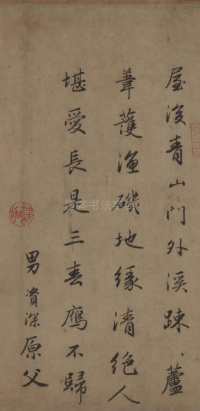 屋後青山門外溪疎、蘆
葦護漁磯地緣清絕人
堪愛長是三春鴈不歸
男資深原父